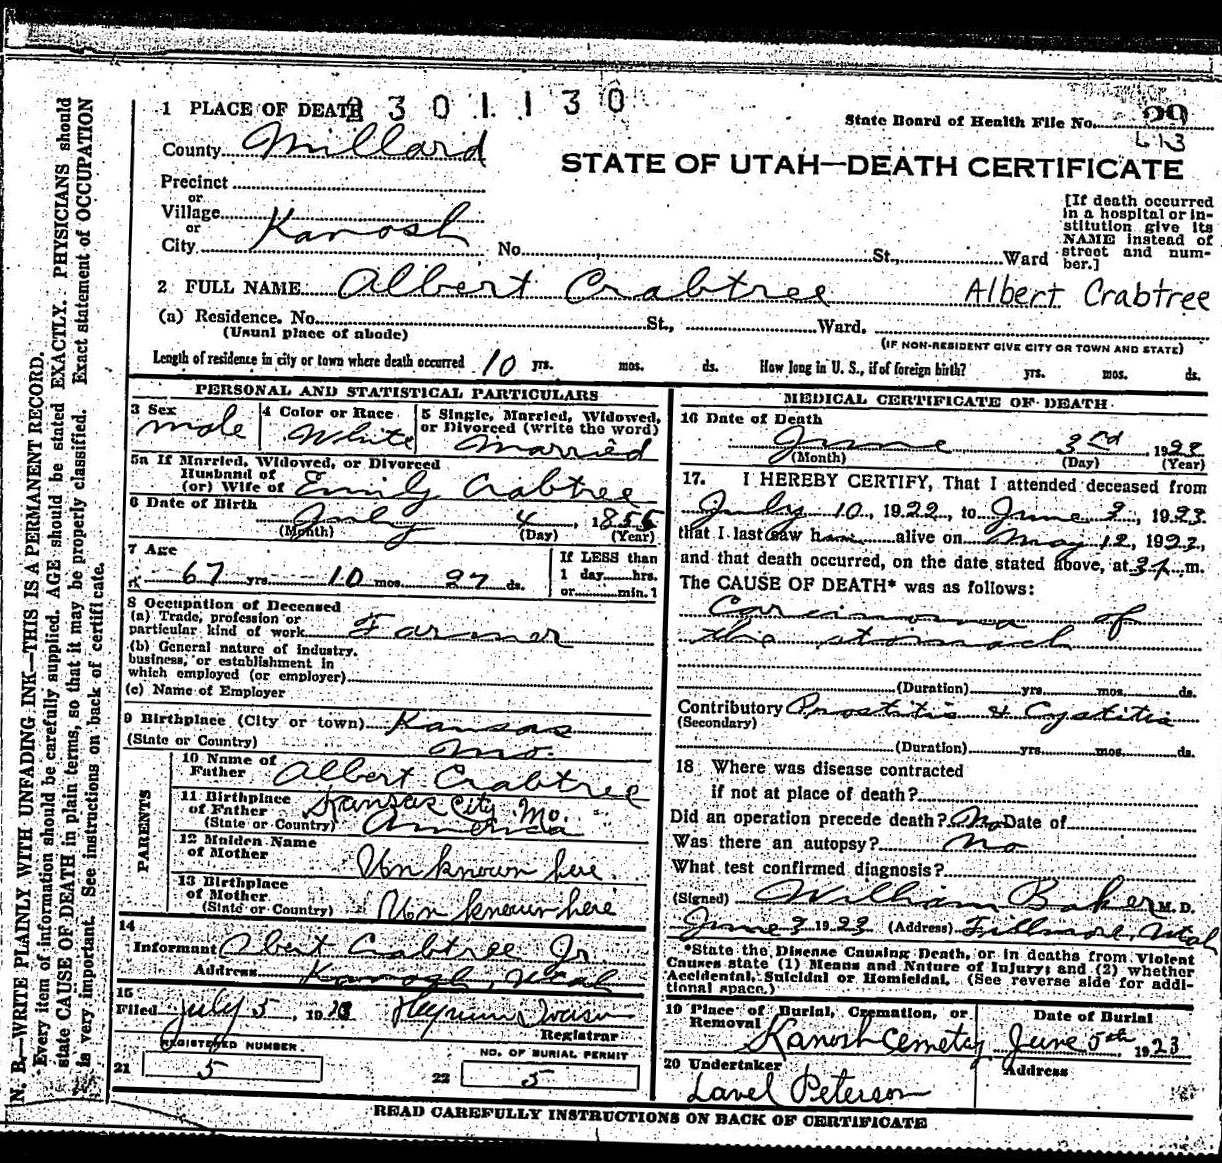 1 PLACE OF DEATH 2301130
State Board of Health File No. 29
County Millard
STATE OF UTAH—DEATH CERTIFICATE
Precinct
or
Village
or
City Kanosh No. St., Ward
[If death occurred
in a hospital or in-
stitution give its
NAME instead of
street and num-
ber.]
2 FULL NAME Albert Crabtree Albert Crabtree
(a) Residence. No. St., Ward.
(Usual place of abode) (IF NON-RESIDENT GIVE CITY OR TOWN AND STATE)
Length of residence in city or town where death occurred 10 yrs. mos. ds. How long in U. S., if of foreign birth? yrs. mos. ds.
PERSONAL AND STATISTICAL PARTICULARS
3 Sex
male
4 Color or Race
White
5 Single, Married, Widowed,
or Divorced (write the word)
Married
5a If Married, Widowed, or Divorced
Husband of
(or) Wife of Emily Crabtree
6 Date of Birth
July 4, 1855
(Month) (Day) (Year)
7 Age
67 yrs. 10 mos. 27 ds.
If LESS than
1 day hrs.
or min.?
8 Occupation of Deceased
(a) Trade, profession or
particular kind of work Farmer
(b) General nature of industry,
business, or establishment in
which employed (or employer)
(c) Name of Employer
9 Birthplace (City or town) Kansas
(State or Country) Mo.
PARENTS
10 Name of
Father Albert Crabtree
11 Birthplace
of Father Kansas City Mo.
(State or Country) America
12 Maiden Name
of Mother Unknown here.
13 Birthplace
of Mother
(State or Country) Unknown here
14
Informant Albert Crabtree Jr.
Address Kanosh, Utah
15
Filed July 5, 19
Registrar
21 REGISTERED NUMBER
5
22 NO. OF BURIAL PERMIT
5
MEDICAL CERTIFICATE OF DEATH
16 Date of Death
June 3rd, 1923
(Month) (Day) (Year)
17. I HEREBY CERTIFY, That I attended deceased from
July 10, 1922, to June 3, 1923
that I last saw him alive on May 12, 1923,
and that death occurred, on the date stated above, at m.
The CAUSE OF DEATH* was as follows:
Carcinoma of
the stomach
(Duration) yrs. mos. ds.
Contributory Prostitis & Cystitis
(Secondary)
(Duration) yrs. mos. ds.
18 Where was disease contracted
if not at place of death?
Did an operation precede death? No Date of
Was there an autopsy? No
What test confirmed diagnosis?
(Signed) William Baker M. D.
June 3 1923 (Address) Fillmore, Utah
*State the Disease Causing Death, or in deaths from Violent
Causes state (1) Means and Nature of Injury; and (2) whether
Accidental, Suicidal or Homicidal. (See reverse side for addi-
tional space.)
19 Place of Burial, Cremation, or
Removal Kanosh Cemetery
Date of Burial
June 5th 1923
20 Undertaker
Lavel Peterson
Address
READ CAREFULLY INSTRUCTIONS ON BACK OF CERTIFICATE
N. B.—WRITE PLAINLY WITH UNFADING INK—THIS IS A PERMANENT RECORD.
Every item of information should be carefully supplied. AGE should be stated EXACTLY. PHYSICIANS should
state CAUSE OF DEATH in plain terms, so that it may be properly classified. Exact statement of OCCUPATION
is very important. See instructions on back of certificate.